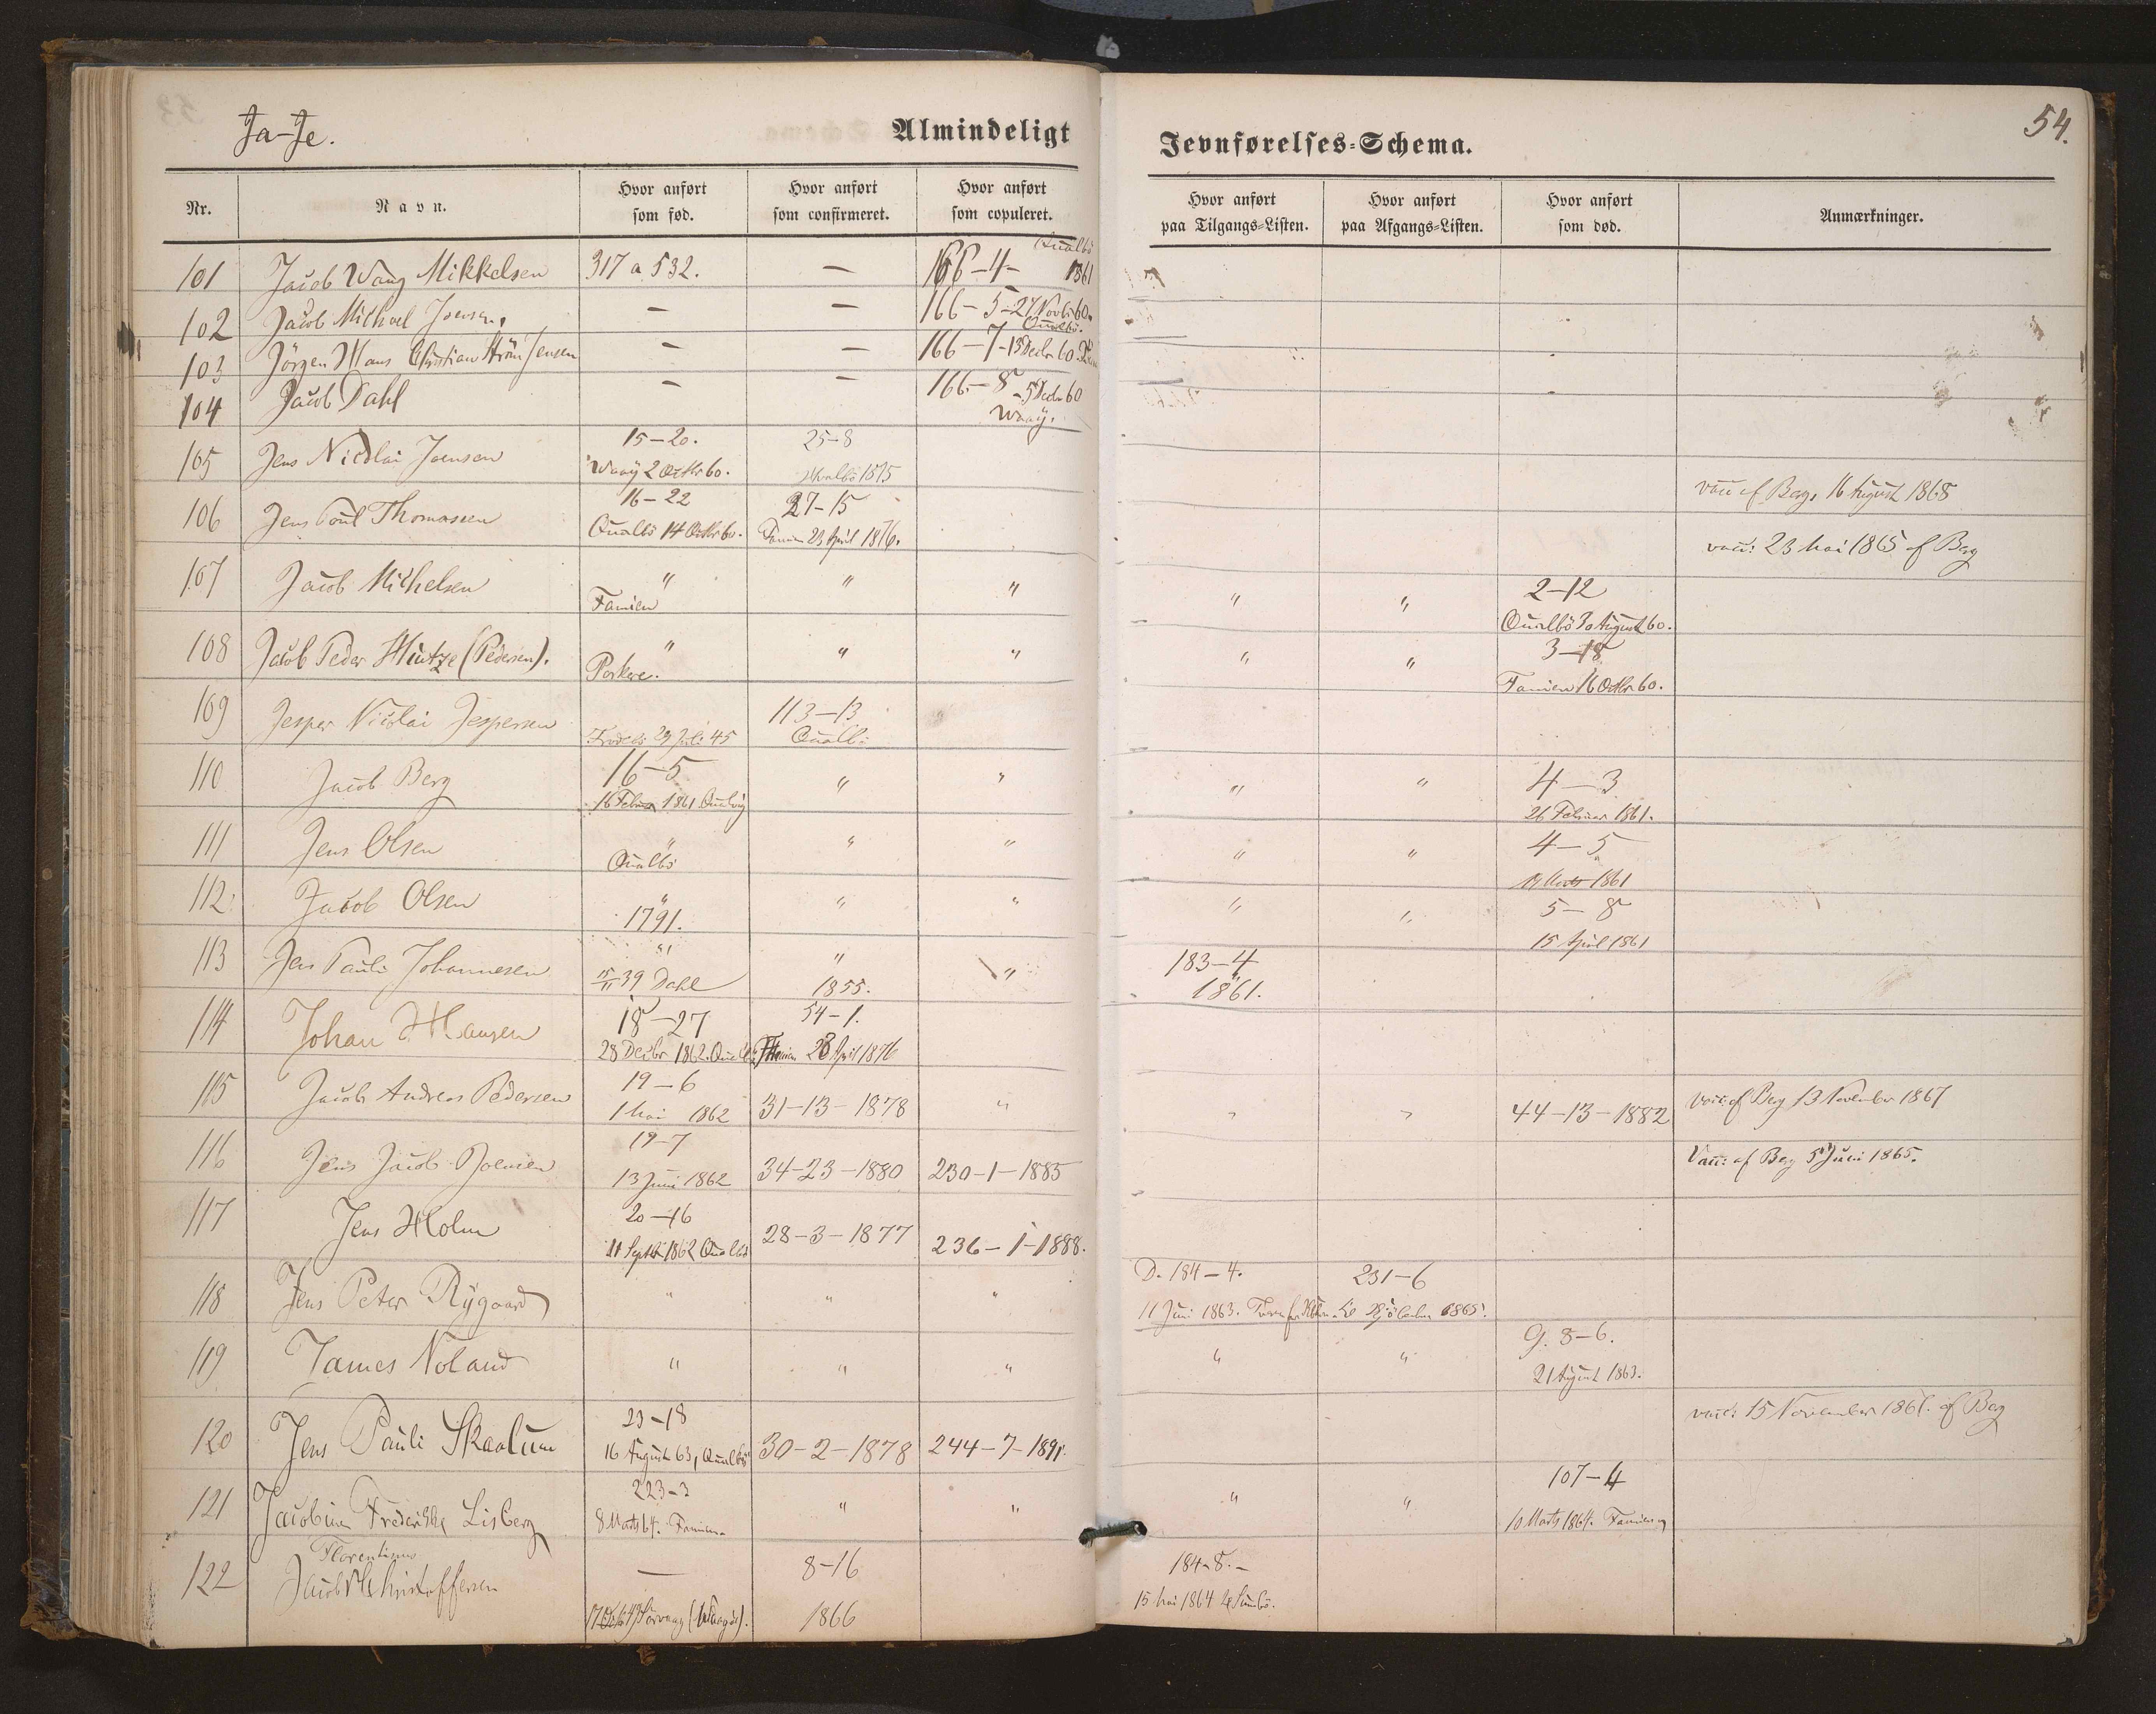 Ja-Je.
Almindeligt
Jevnførelses-Schema.
54.
Nr.
Navn.
Hvor anført som fød.
Hvor anført som confirmeret.
Hvor anført som copuleret.
Hvor anført paa Tilgangs-Listen.
Hvor anført paa Afgangs-Listen.
Hvor anført som død.
Anmærkninger.
101 Jacob Wang Mikkelsen 317 a 532. — 166-4- Qualbö 1861
102 Jacob Michael Joensen. — — 166-5-27 Novbr 60. Qualbö.
103 Jörgen Hans Christian Ström Jensen — — 166-7-13 Decbr 60.
104 Jacob Dahl — — 166-8-5 Decbr 60 Waag.
105 Jens Nicolai Joensen 15-20. 25-8
Waag 2 Octbr 60. Hvalbö 1875 vacc: af Berg, 16 August 1868
106 Jens Poul Thomassen 16-22 27-15
Qualbö 14 Octbr 60. Famien 23 April 1876. vacc: 23 Mai 1865 af Berg
107 Jacob Michelsen " " " " " 2-12
Famien Qualbö 30 August 60.
108 Jacob Peder Hintze (Pedersen). " " " " " 3-18
Porkere. Famien 16 Octbr 60.
109 Jesper Nicolai Jespersen 113-13
Frodebö 29 Juli 45 Qualbö
110 Jacob Berg 16-5 " " " " 4-3
16 Februar 1861 Qualvig 26 Februar 1861.
111 Jens Olsen " " " " " 4-5
Qualbö 19 Marts 1861
112. Jacob Olsen " " " " " 5-8
1791. 15 April 1861
113 Jens Pauli Johannesen " " " 183-4
15/11 39 Dahl 1855. 1861.
114 Johan Hansen 18-27 54-1.
28 Decbr 1862. Qualbö Famien 28 April 1876
115 Jacob Andreas Pedersen 19-6
1 Mai 1862 31-13-1878 " " " 44-13-1882 vacc: af Berg 13 November 1867
116 Jens Jacob Joensen 19-7
13 Juni 1862 34-23-1880 230-1-1885 Vacc: af Berg 5 Juni 1865.
117 Jens Holm 20-16
11 Septbr 1862 Qualbö 28-3-1877 236-1-1888.
118 Jens Peter Rygaard " " " D. 184-4. 231-6
11 Juni 1863. 1865.
119 James Noland " " " " " G. 8-6.
21 August 1863.
120 Jens Pauli Skaalum 23-18
16 August 63, Qualbö 30-2-1878 244-7-1891. vacc: 15 November 1867. af Berg
121 Jacobine Frederikke Lisberg 223-3 " " " " 107-4
8 Marts 64. Famien. 10 Marts 1864. Famien
122 Jacob Florentinus Christoffersen — 8-16 184-8.-
17 Octbr Sorvaag (Waagö). 1866 15 Mai 1864 Sumbö.